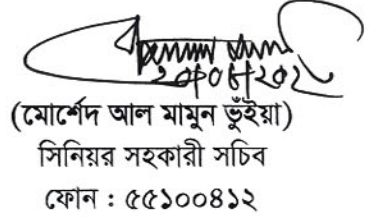 (মোর্শেদ আল মামুন ভুঁইয়া)
সিনিয়র সহকারী সচিব
ফোন : ৫৫১০০৪১২